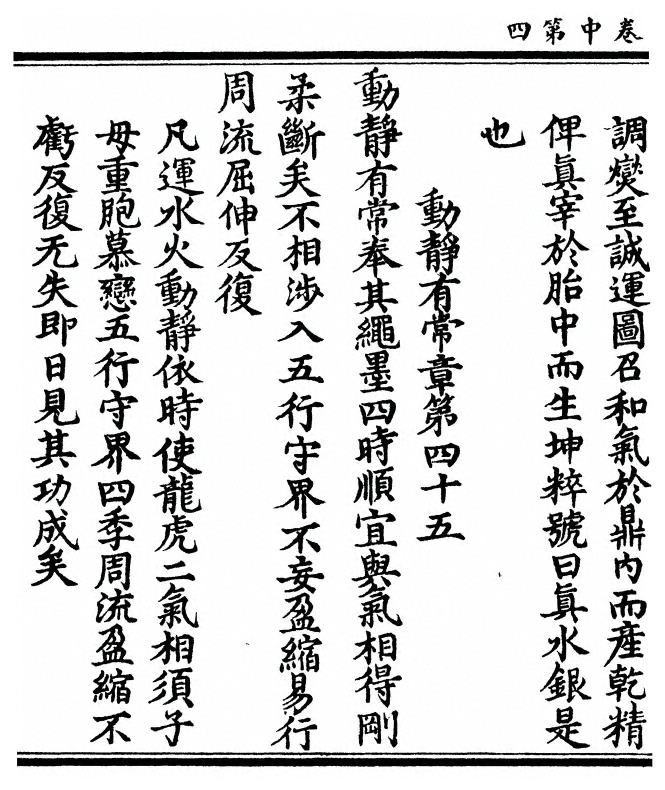 卷中第四
調燮至誠運圖召和氣於鼎內而產乾精
俾眞宰於胎中而生坤粹號曰眞水銀是
也
動靜有常章第四十五
動靜有常奉其繩墨四時順宜與氣相得剛
柔斷矣不相涉入五行守界不妄盈縮易行
周流屈伸反復
凡運水火動靜依時使龍虎二氣相須子
母重胞慕戀五行守界四季周流盈縮不
虧反復无失即日見其功成矣